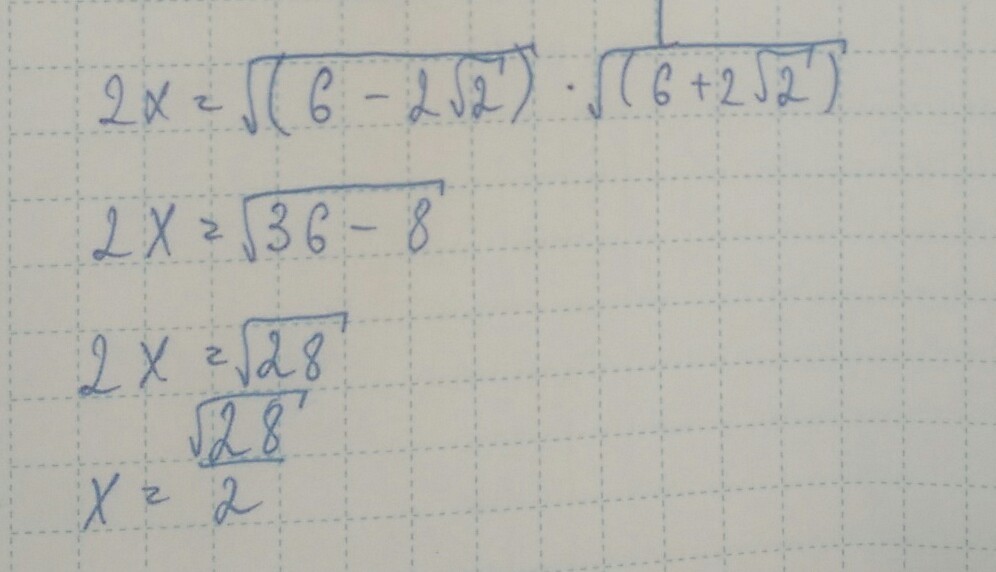 2x = √(6 - 2√2) · √(6 + 2√2)
2x = √36 - 8
2x = √28
√28
x = 2